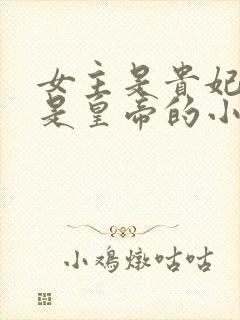 女主是貴妃
是皇帝的小
小鳮燉咕咕